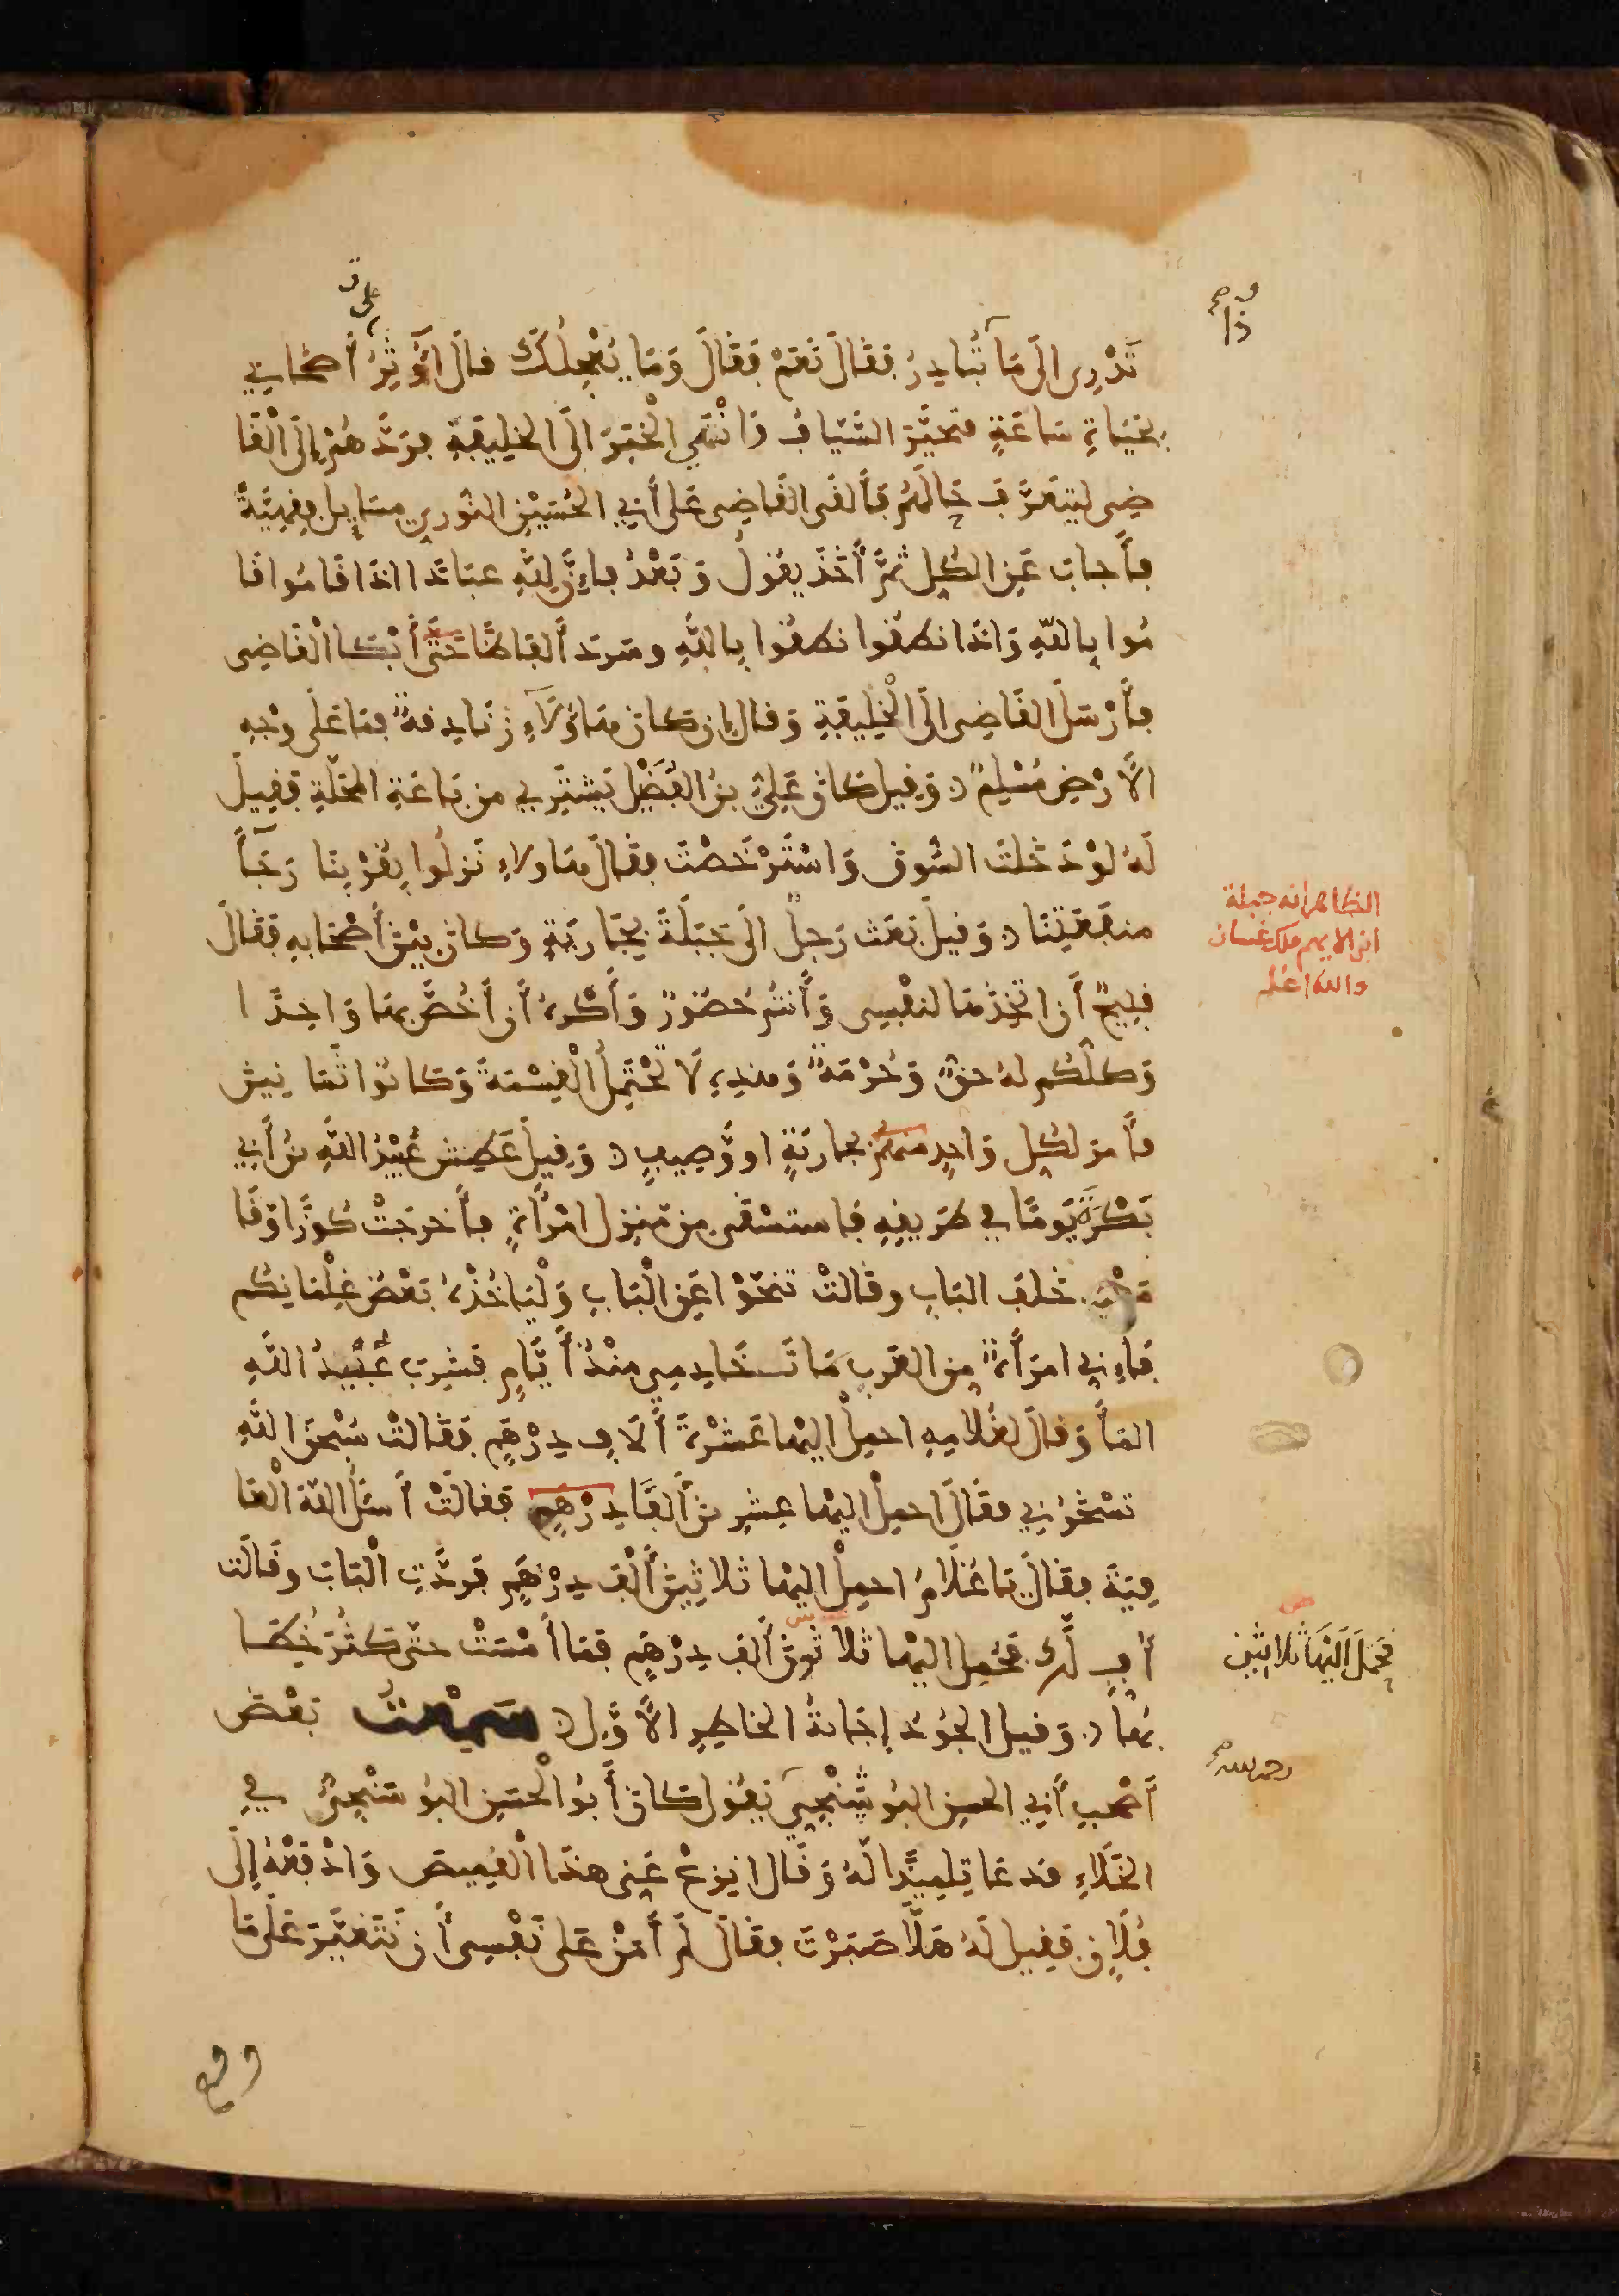 تَدْرِى إلَى مَا تُبَادِرُ فَقَالَ نَعَمْ فَقَالَ وَمَا يُعْجِلُكَ قَالَ أُوثِرُ أَصْحَابِي
على
بِحَيَاةِ سَاعَةٍ فَتَحَيَّرَ السَّيَّافُ وَانْتَهى الْخَبَرُ الَى الخَلِيفَةِ فَرَدَّ هُمْ إلَى الْقَا
ضِى لِيَتَعَرَّفَ حَالَهُمْ فَألقَى القَاضِى عَلى أَبِي الحُسَيْنِ النُّورِي مسَايِل فِقْهِيَّةً
فأَجابَ عَنِ الكُلِ ثمَّ أَخَذَ يقُولُ وَبَعْدُ فإِنَّ لِلهِ عبَادًا اذَا قَامُوا قَا
مُوا بِاللهِ وَاذَا نطقُوا نطقُوا بِاللهِ وسَرَدَ ألفَاظًا حَتَّى أَبْكَا الْقَاضِى
فأَرْسَلَ القَاضِى الَى الْخَلِيفَةِ وَقال إن كانَ هَاؤلَاءِ زَنَادِقةً فمَا عَلَى وجْهِ
الأَرْضِ مُسْلِمٌ وَقِيل كانَ عَلِيُّ بنُ الفُضَيْل يَشْتَرِي من بَاعَةِ المحَلَّةِ فَقِيلَ
لَهُ لوْ دَخَلتَ السُّوقَ وَاسْتَرْخَصْتَ فقَالَ هَاولاءِ نَزلُوا بِقُرْبِنَا رَجَآءً
منفَعَتِنَا وَقِيلَ بَعَثَ رَجلٌ الَى جَبَلَةَ بِجَارِيَةٍ وَكانَ بيْنَ أَصْحَابِهِ فَقَالَ
قبِيحٌ أَن اتَّخِذَهَا لنفْسِى وَأَنتُم حُضُورٌ وَأَكْرَهُ أَن أَخُصَّ بِهَا وَاحِدًا
وَكلُّكُم لهُ حقٌّ وَحُرْمَةٌ وَهذِهِ لَا تَحْتَمِلُ الْقِسْمَةَ وَكَانُوا ثَمَانِينَ
فأَمرَ لكُلِ وَاحِدٍ منهُم بجاريَةٍ او وَصِيفٍ وَقِيلَ عَطِشَ عُبَيْدُ اللهِ بنُ أَبِي
بَكْرَةَ يَومًا فِي طَرِيقِهِ فاستَسْقَى مِن مَنزِل امْرَأَةٍ فأَخرَجَتْ كُوزًا وَقَا
مَتْ خَلفَ البَابِ وقَالَتْ تنحَّوْا عَنِ الْبَابِ وَلْيَاخُذْهُ بَعْضُ غِلْمَانِكُم
فَإِنِي امرَأَةٌ مِنَ العَرَبِ مَاتَ خَادِمِي مُنْذُ أَيَّامٍ فشَرِبَ عُبَيْدُ اللهِ
المَاءَ وَقالَ لغُلَامِهِ احمِلْ اليهَا عَشْرَةَ ألَافِ دِرْهَمٍ فَقَالَتْ سُبْحنَ اللهِ
تَسْخَرُ بِي فقَالَ احمِلْ اليهَا عِشْرِينَ أَلفَ دِرْهَمٍ فَقَالَتْ أَسئَلُ اللهَ الْعَا
فِيَةَ فقَالَ يَا غُلَامُ احمِلْ اليهَا ثَلَاثِينَ أَلْفَ دِرْهَمٍ فَرَدَّتِ الْبَابَ وقَالَت
أُفٍّ لَّكَ فَحُمِل اليهَا ثلاثُونَ أَلفَ دِرْهَمٍ فَمَا أَمْسَتْ حتَّى كَثُرَ خُطَّا
بُهَا وَقيل الجُودُ إجَابةُ الخاطِرِ الأَوَّلِ سَمِعْتُ بَعْضَ
أَصْحبِ أَبِي الحسنِ البُوشَنْجِيِّ يَقُول كانَ أَبُو الْحَسَنِ البُوشَنْجِىُّ فِي
الخَلَاءِ فدعَا تِلمِيذًا لَهُ وَقَال انزِعْ عَنِى هذَا الْقَمِيصَ وَادْفَعْهُ إلَى
فُلَانٍ فَقِيل لَهُ هَلَّا صَبَرْتَ فقَالَ لَمْ أَمَنْ عَلى نَفْسِى أَن تَتَغَيَّرَ عَلَى مَا
وقع
الظاهر انه جبلة
ابن الايهم ملك غسان
والله اعلم
فَحَمَلَ اِلَيْهَا ثلاثين
رحمه الله صح